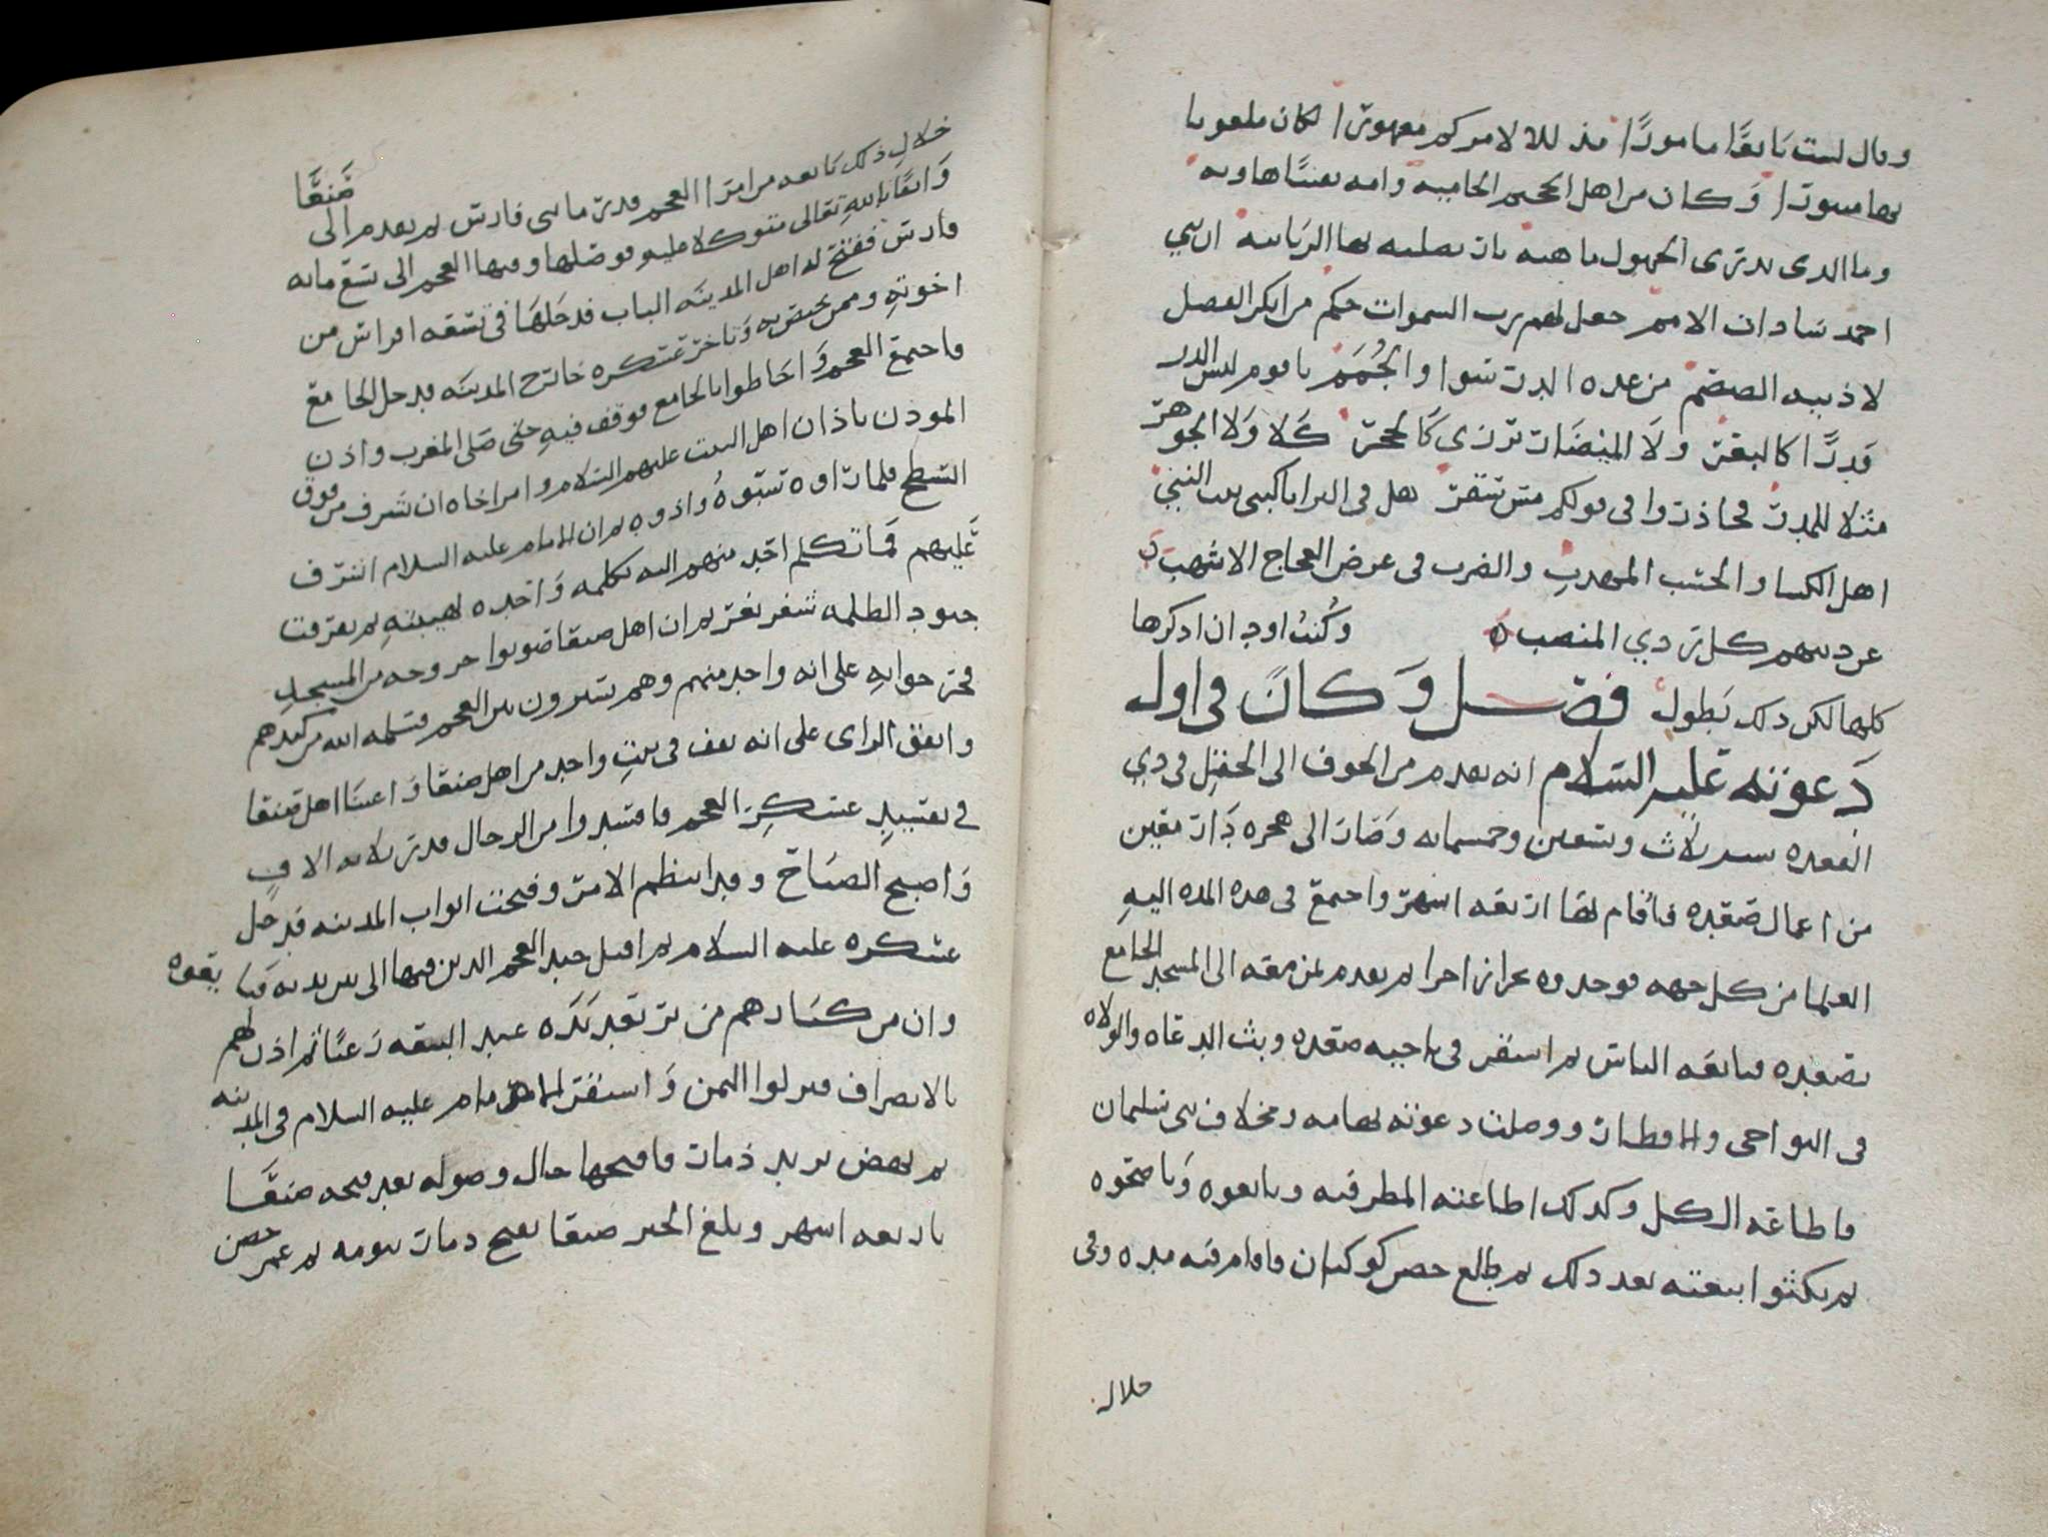 وقال لست تابعًا مامورًا
لكان ملعونا
بها مبورا وكان من اهل الجحيم الحاميه وامه بعثًا هاويه
وما الذي يدرى الجهول ماهيه نار تصليه بها الزبانيه ان بني
احمد سادات الامم جعل لهم رب السموات حكم من انكر الفضل
لاذنيه الصمم من عنده الدر سوا والحُمَم يا قوم ليس الدر
قدرًا كالبقر ولا المبيضات ترى كالحجر كلا ولا الجوهر
مثلا للمدر فحاذروا في قولكم مس سقر هل في البرايا كبنى بنت النبي
اهل الكسا والحسب المهذب والضرب في عرض العجاج الاشهب
عن دينهم كل ردي المنصب ه وكُنتُ اود ان اذكرها
كلها لكن ذلك يطول فصل وكان في اول
دعوته عليه السلام انه تقدم من الجوف الى الحقل في ذي
القعده سنه ثلاث وتسعين وخمسمايه وصار الى هجره دار معين
من اعمال صعده فأقام بها اربعه اشهر واجتمع في هذه المده اليهِ
العلما من كل جهه فوجدوه بحرا زاخرا ثم تقدم بمن معه الى المسجد الجامع
بصعده فبايعه الناس ثم استقر في ناحيه صعده وبث الدعاه والولاه
في النواحي والاقطار ووصلت دعوته تهامه ومخلاف بني سليمان
فاطاعه الكل وكذلك اطاعته المطرفيه وبايعوه وناصحوه
ثم نكثوا بيعته بعد ذلك ثم طالع حصن كوكبان فاقام فيه مده وفي
خلال
خلالِ ذلك بايعه من امرا العجم قدر مايتى فارس ثم تقدم الى صنعا
واثقًا باللهِ تعالى متوكلا عليه فوصلها وفيها العجم الى تسع مايه
فارس ففتح له اهل المدينه الباب فدخلها في تسعه افراس من
اخوتهِ وممن يختص به وتاخر عسكره خارج المدينه فدخل الجامع
فاجتمع العجم واحاطوا بالجامع فوقف فيهِ حتى صلى المغرب واذن
الموذن باذان اهل البيت عليهم السلام وامر اخاه ان شرف من فوق
السطح فلما راوه سبّوهُ واذوه ثم ان الامام عليه السلام اشرف
عليهم فما تكلم احد منهم اليه بكلمه واحده لهيبتهِ ثم تفرقت
جنود الظلمه شغر بغر ثم ان اهل صنعا صوبوا خروجه من المسجد
فخرج
على انه واحد منهم وهم يسيرون بين العجم فسلمه الله من كيدهم
واتفق الراى على انه يقف في بيتِ واحد من اهل صنعا واعنتا اهل صنعا
في
عسكرِ العجم
من الرجال قدر ثلاثه الافٍ
واصبح الصباح وقد انتظم الامر وفتحت ابواب المدينه فدخل
عسكره عليه السلام ثم اقبل جند العجم الذين فيها الى بين يديه فبايعوه
وان من كبارهم من ترتعد يَدَه عند البيعه رعبًا ثم اذن لهم
بالانصراف فنزلوا اليمن واستقر الامام عليه السلام في المدينه
ثم نهض يريد ذمار فافتتحها حال وصوله بعد فتحه صنعا
باربعه اشهر وبلغ الخبر صنعا بفتح ذمار يومه ثم عمر حصن